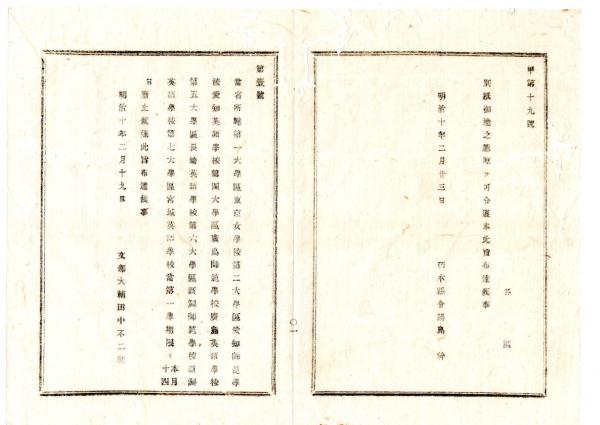 甲第十九號
各區
明治十年二月廿三日
第壹號
當省所轄第一大學區東京女學校第二大學區愛知師範學
校愛知英語學校第四大學區廣島師範學校廣島英語學校
第五大學區長崎英語學校第六大學區新潟師範學校新潟
英語學校第七大學區宮城英語學校當第一學期限リ本月十四
日廢止候條此旨布達候事
明治十年二月十九日
文部大輔田中不二麿
〇一